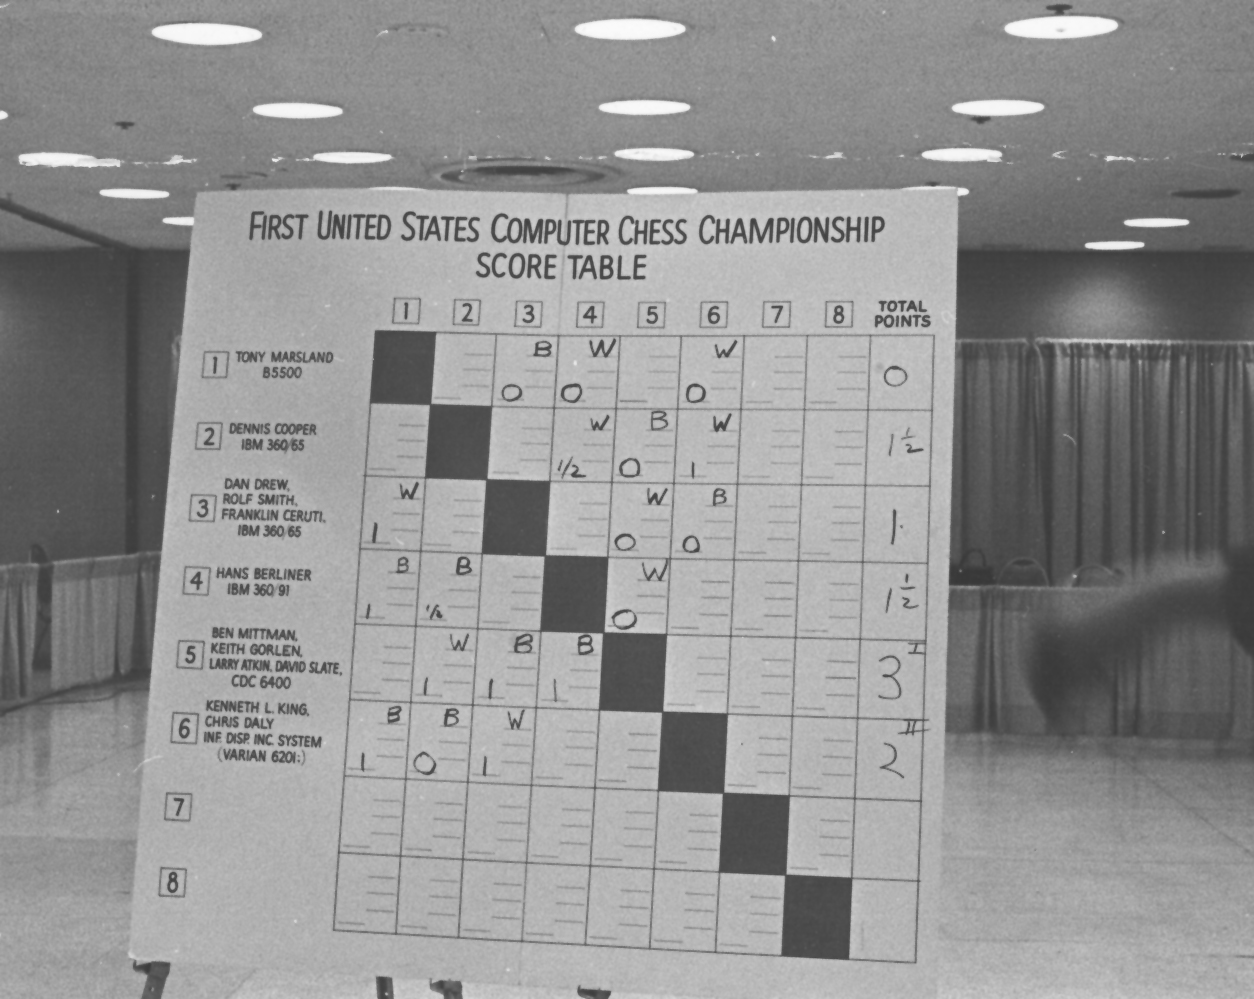 FIRST UNITED STATES COMPUTER CHESS CHAMPIONSHIP
SCORE TABLE
1 2 3 4 5 6 7 8 TOTAL POINTS
1 TONY MARSLAND
B5500
B W W
0 0 0 0
2 DENNIS COOPER
IBM 360/65
W B W
1/2 0 1 1 1/2
3 DAN DREW,
ROLF SMITH,
FRANKLIN CERUTI,
IBM 360/65
W W B
1 0 0 1
4 HANS BERLINER
IBM 360/91
B B W
1 1/2 0 1 1/2
5 BEN MITTMAN,
KEITH GORLEN,
LARRY ATKIN, DAVID SLATE,
CDC 6400
W B B I
1 1 1 3
6 KENNETH L. KING,
CHRIS DALY
INF. DISP. INC. SYSTEM
(VARIAN 620I:)
B B W II
1 0 1 2
7
8